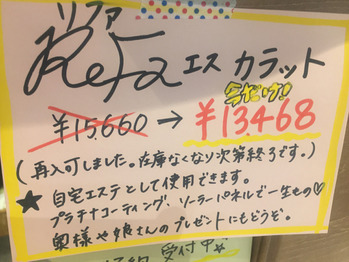 リファ
ReFa エス カラット
今だけ!
¥15.660 → ¥13.468
(再入可しました。在庫なくなり次第終了です。)
★ 自宅エステとして使用できます。
プラチナコーティング、ソーラーパネルで一生もの♡
奥様や娘さんのプレゼントにもどうぞ。
受付中☆